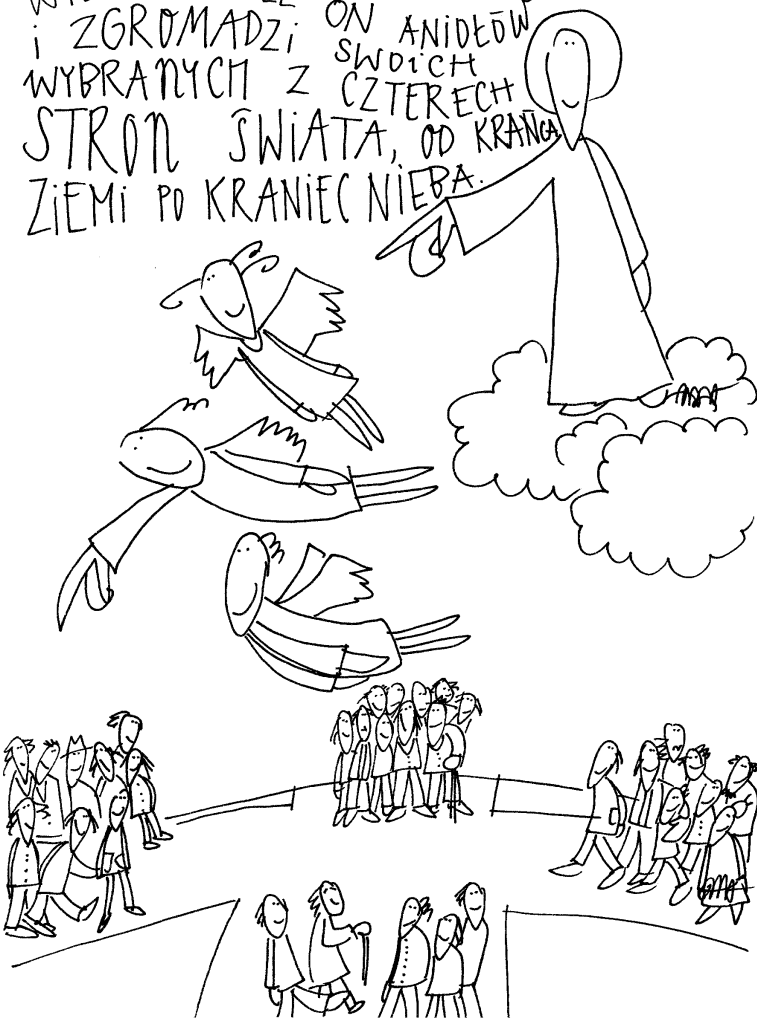 ON ANIOŁÓW SWOiCH
i ZGROMADZi
WYBRANYCH Z CZTERECH
STRON ŚWIATA, OD KRAŃCA
ZiEMi PO KRANIEC NIEBA.